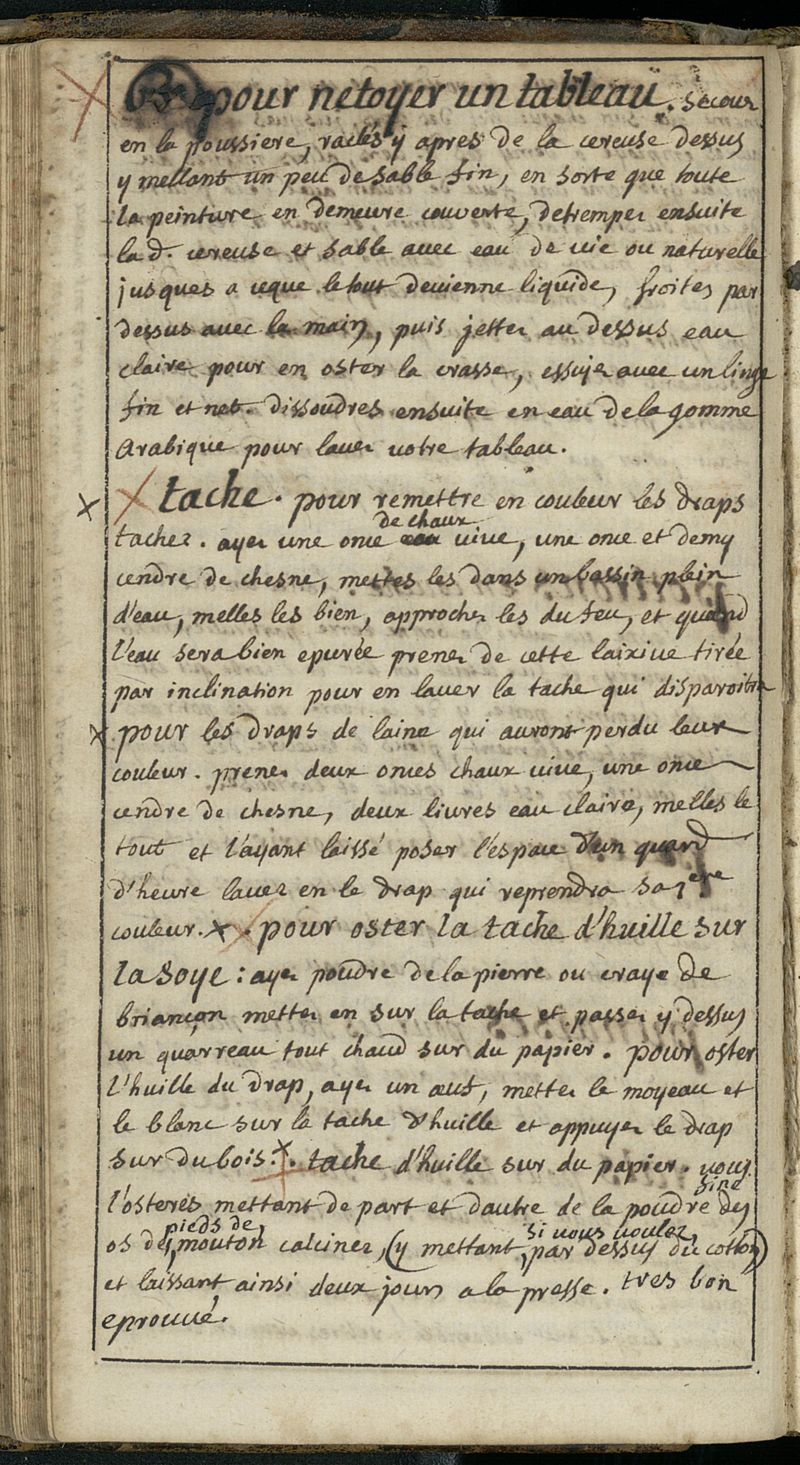 pour netoyer un tableau. secoue
en la poussiere, raclés y apres de la cereuse dessus
y mettant un peu de sable fin, en sorte que toute
la peinture en demeure couverte, detrempez ensuite
la d. cereuse et sable avec eau de vie ou naturelle
jusques a ceque le tout devienne liquide, frottes par
dessus avec la main, puis jetter au dessus eau
claire pour en oster la crasse, essuye avec un linge
fin et net. dissoudres ensuite en eau de la gomme
Arabique pour laver votre tableau.
tache. pour remettre en couleur les draps
tachez. ayez une once de chaux vive, une once et demy
cendre de chesne, mettes les dans un bassin plein
d'eau, melles les bien, approchez les du feu, et quand
l'eau sera bien epurée prenez de cette laixive tirée
par inclination pour en laver la tache qui disparoitra
pour les draps de laine qui auront perdu leur
couleur. prenez deux onces chaux vive, une once
cendre de chesne, deux livres eau claire, melles le
tout et l'ayant laissé poser l'espace d'un quard
d'heure lavez en le drap qui reprendra sa 1ere
couleur. pour oster la tache d'huille sur
la soye: ayez poudre de la pierre ou craye de
briançon mettez en sur la tache et passez y dessus
un quarreau tout chaud sur du papier. pour oster
l'huille du drap, ayez un œuf, mettez le moyeau et
le blanc sur la tache d'huille et appuyez le drap
sur du bois. tache d'huille sur du papier. vous
l'osterés mettant de part et dautre de la poudre fine des
os de pieds de mouton calcinez, (y mettant, si vous voulez, par dessus du cotton)
et laissant ainsi deux jours a la presse. tres bon
eprouvé.